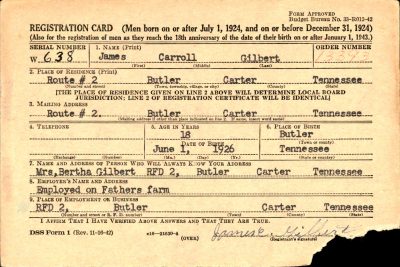 FORM APPROVED
Budget Bureau No. 33-R010-42
REGISTRATION CARD (Men born on or after July 1, 1924, and on or before December 31, 1924)
(Also for the registration of men as they reach the 18th anniversary of the date of their birth on or after January 1, 1943.)
SERIAL NUMBER 1. NAME (Print) ORDER NUMBER
W 638 James Carroll Gilbert
(First) (Middle) (Last)
2. PLACE OF RESIDENCE (Print)
Route # 2 Butler Carter Tennessee
(Number and street) (Town, township, village, or city) (County) (State)
[THE PLACE OF RESIDENCE GIVEN ON LINE 2 ABOVE WILL DETERMINE LOCAL BOARD
JURISDICTION; LINE 2 OF REGISTRATION CERTIFICATE WILL BE IDENTICAL]
3. MAILING ADDRESS
Route # 2. Butler Carter Tennessee
[Mailing address if other than place indicated on line 2. If same, insert word same]
4. TELEPHONE 5. AGE IN YEARS 6. PLACE OF BIRTH
18 Butler
DATE OF BIRTH (Town or county)
June 1, 1926 Tennessee
(Exchange) (Number) (Mo.) (Day) (Yr.) (State or country)
7. NAME AND ADDRESS OF PERSON WHO WILL ALWAYS KNOW YOUR ADDRESS
Mrs,Bertha Gilbert RFD 2, Butler Carter Tennessee
8. EMPLOYER'S NAME AND ADDRESS
Employed on Fathers farm
9. PLACE OF EMPLOYMENT OR BUSINESS
RFD 2, Butler Carter Tennessee
(Number and street or R. F. D. number) (Town) (County) (State)
I AFFIRM THAT I HAVE VERIFIED ABOVE ANSWERS AND THAT THEY ARE TRUE.
DSS Form 1 (Rev. 11-16-42) (OVER)
(Registrant's signature)